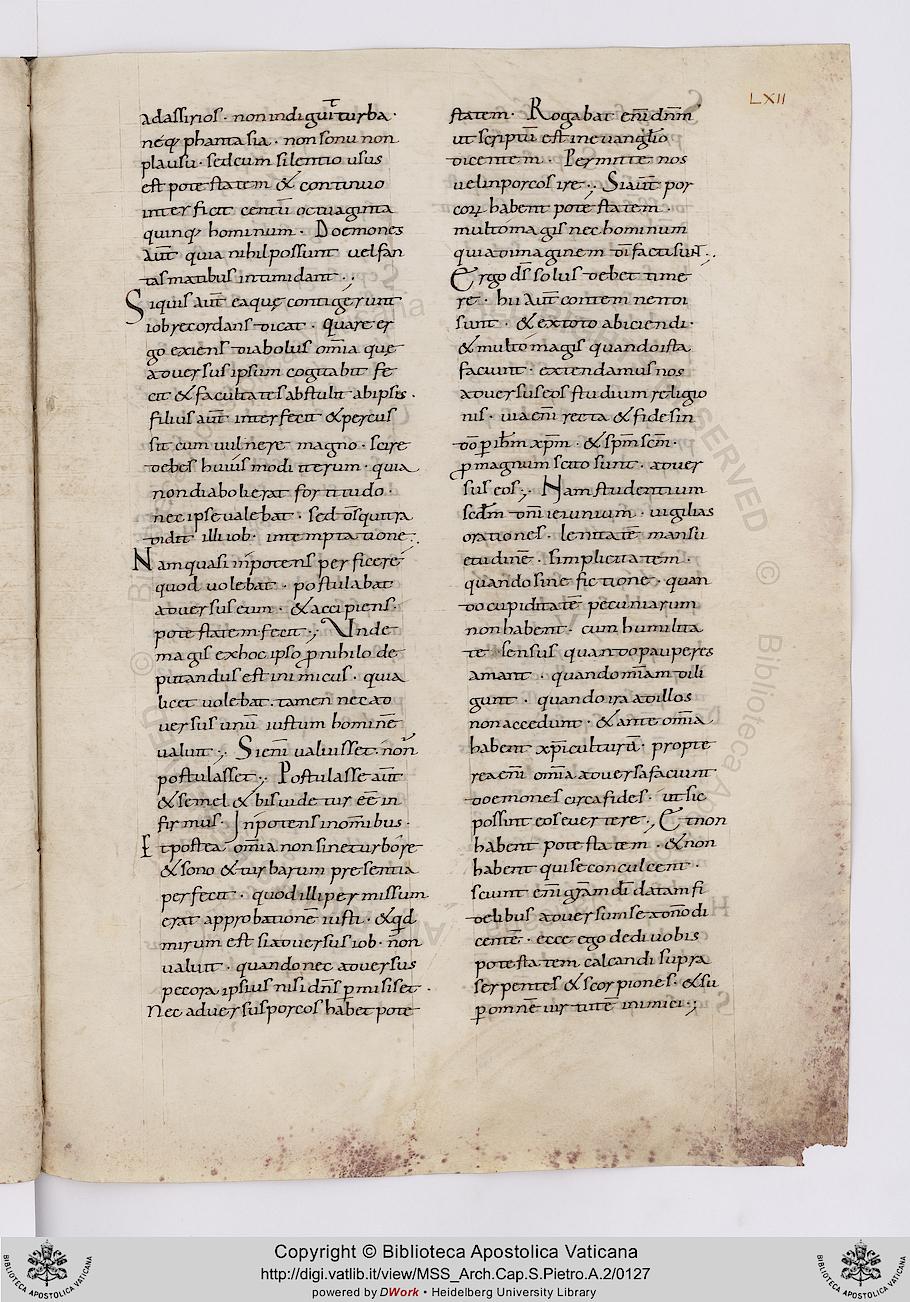 LXII
adassirios · non indiguit turba ·
neq; phantasia · non sonu non
plausu · sed cum silentio usus
est potestatem & continuo
interficit centū octuaginta
quinq; hominum · Doemones
aūt quia nihil possunt vel fan
tasmatibus intimidant ·;
Siquis aūt ea quę contigerunt
iob recordans dicat · quare er
go exiens diabolus om̄ia quę
adversus ipsum cogitabit fe
cit & facultates abstulit ab ipsis ·
filius aūt interfecit & percus
sit cum vulnere magno · scire
debes huius modi iterum · quia
non diaboli erat fortitudo ·
nec ipse valebat · sed d̄s qui tra
didit illi iob · in temptatione ;
Nam quasi inpotens perficere
quod volebat · postulabat
adversus eum · & accipiens ·
potestatem fecit ·; Unde
magis ex hoc ipso p nihilo de
putandus est inimicus · quia
licet volebat · tamen nec ad
versus unū iustum hominē
valuit ·; Si eni valuisset · non
postulasset ·; Postulasse aūt
& semel & bis videtur eē in
firmus · Inpotens in om̄ibus ·
Et postea om̄ia non sine turbore
& sono & turbarum presentia
perfecit · quod illi permissum
erat approbationē iusti · & qd̄
mirum est si adversus iob · non
valuit · quando nec adversus
pecora ipsius nisi dn̄s p misiset ·
Nec adversus porcos habet pote
statem · Rogabat eni dn̄m
ut scriptū est in evanglio
dicentem · Permitte nos
vel in porcos ire ·; Si aūt por
corū habent potestatem ·
multo magis nec hominum
quia ad imaginem dī factus unt ·;
Ergo d̄s solus debet time
re · hii aūt contemnendi
sunt · & ex toto abiciendi ·
& multo magis quando ista
faciunt · extendamus nos
adversus eos studium religio
nis · via eni recta & fides in
dō p ih̄m xp̄m · & sp̄m sc̄m ·
p magnum scuto sunt · adver
sus eos ·; Nam studentium
secdm dn̄i ieiunium · vigilias
orationes · lenitatē mansu
etudinē · simplicitatem ·
quando sine fictione · quan
do cupiditatē pecuniarum
non habent · cum humilita
te sensus quando pauperes
amant · quando m̄iam dili
gunt · quando ira ad illos
non accedunt · & ante om̄ia
habent xp̄i culturā · propte
rea eni om̄ia adversa faciunt
doemones circa fides · ut sic
possint eos evertere ·; Et non
habent potestatem · & non
habent qui se conculcent ·
sciunt eni gr̄am dī datam fi
delibus adversum se a dn̄o di
centē · ecce ego dedi vobis
potestatem calcandi supra
serpentes & scorpiones · & su
p omnē virtutē inimici ·;
Copyright © Biblioteca Apostolica Vaticana
http://digi.vatlib.it/view/MSS_Arch.Cap.S.Pietro.A.2/0127
powered by DWork • Heidelberg University Library